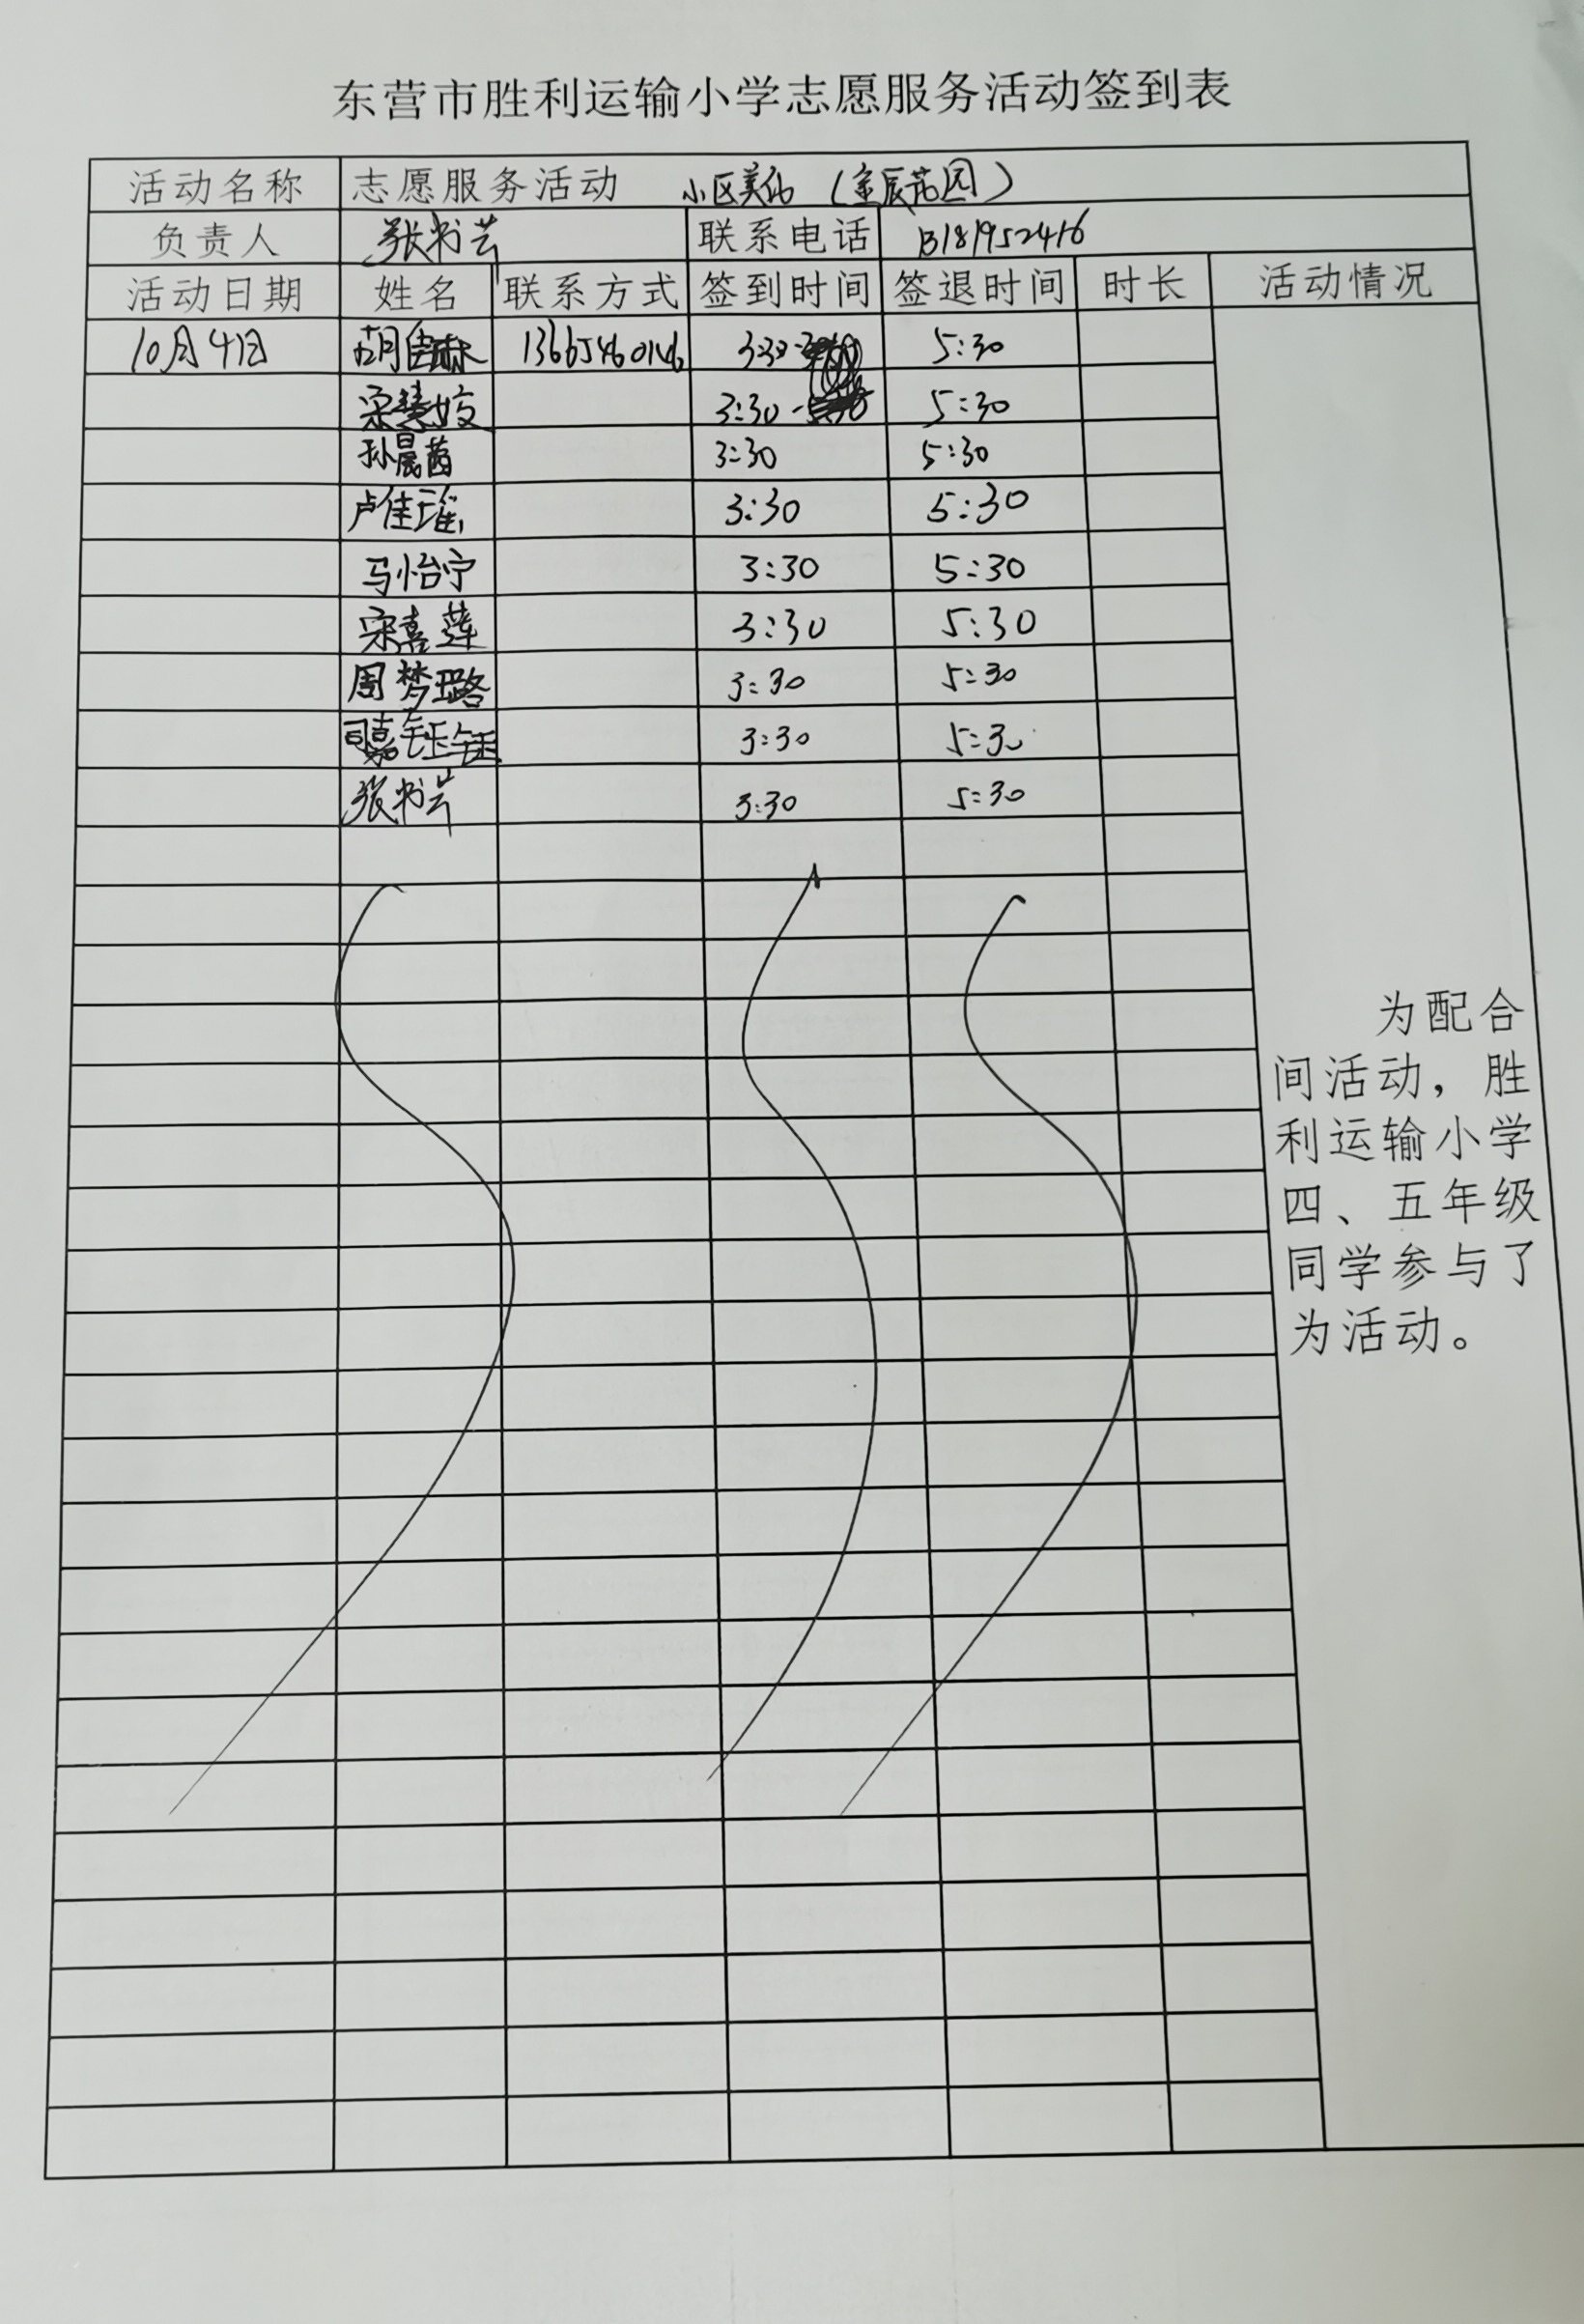 东营市胜利运输小学志愿服务活动签到表
活动名称 志愿服务活动 小区美化（金辰花园）
负责人 张书芸 联系电话 13181952416
活动日期 姓名 联系方式 签到时间 签退时间 时长 活动情况
10月4日 胡佳 13665460146 3:30 5:30
宋慧妏 3:30 5:30
孙晨茜 3:30 5:30
卢佳瑶 3:30 5:30
马怡宁 3:30 5:30
宋嘉莲 3:30 5:30
周梦璐 3:30 5:30
司嘉钰 3:30 5:30
张书芸 3:30 5:30
为配合
间活动，胜
利运输小学
四、五年级
同学参与了
为活动。